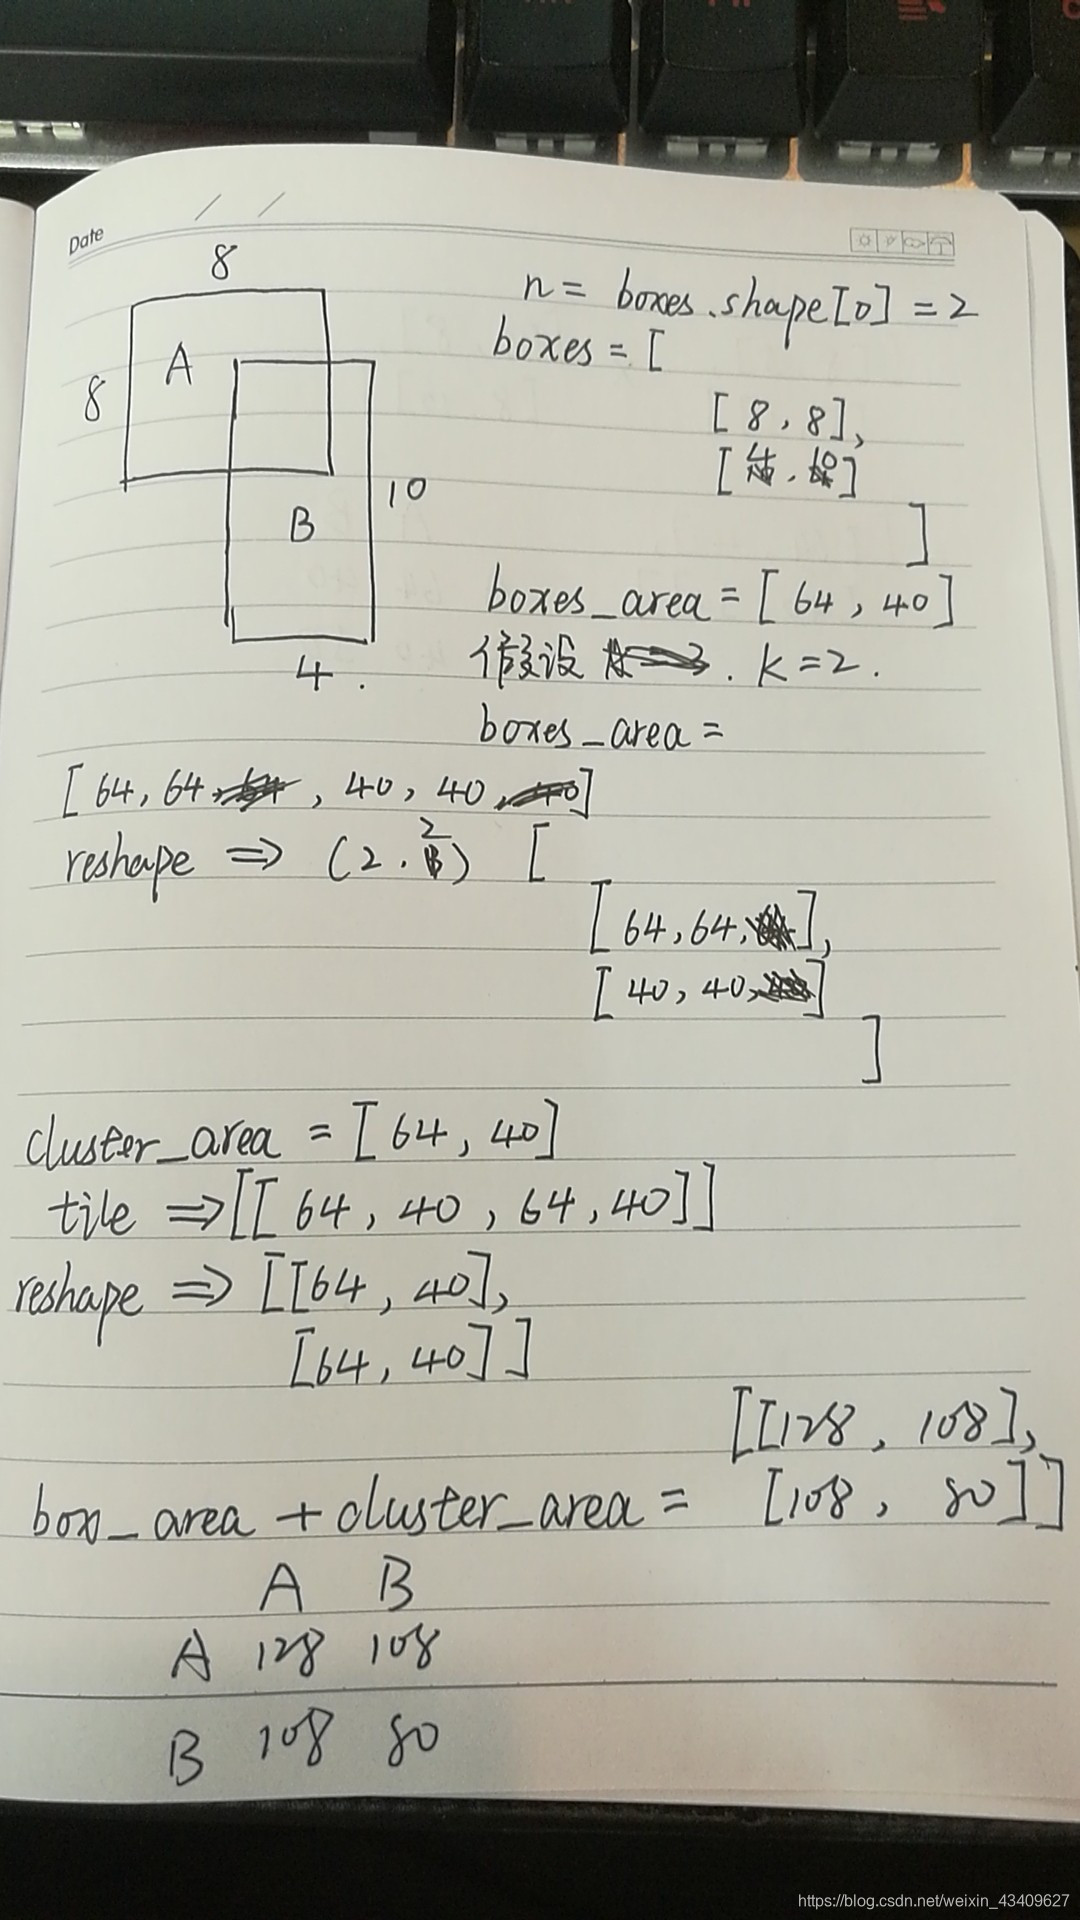 Date / /
8
8
A
10
B
4 .
n = boxes.shape[0] = 2
boxes = [
[ 8 , 8],
[ 4 , 10 ]
]
boxes_area = [ 64 , 40 ]
假设 . K=2 .
boxes_area =
[ 64, 64, , 40, 40, ]
reshape ⇒ (2, 2) [
[ 64, 64, ],
[ 40, 40, ]
]
cluster_area = [ 64, 40]
tile ⇒ [[ 64, 40, 64, 40]]
reshape ⇒ [[64, 40],
[64, 40]]
[[128, 108],
box_area + cluster_area = [108, 80]]
A B
A 128 108
B 108 80
https://blog.csdn.net/weixin_43409627